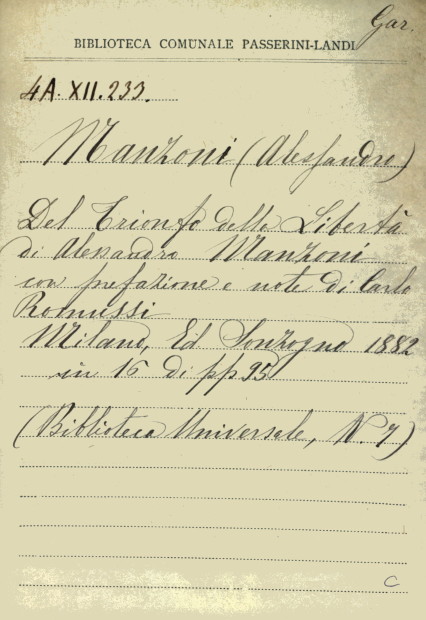 Gar.
BIBLIOTECA COMUNALE PASSERINI-LANDI
4A. XII. 233.
Manzoni (Alessandro)
Del Trionfo della Libertà
di Alessandro Manzoni
con prefazione e note di Carlo
Romussi
Milano, Ed Sonzogno 1882
in 16 di pp 95
(Biblioteca Universale, N. 7)
C